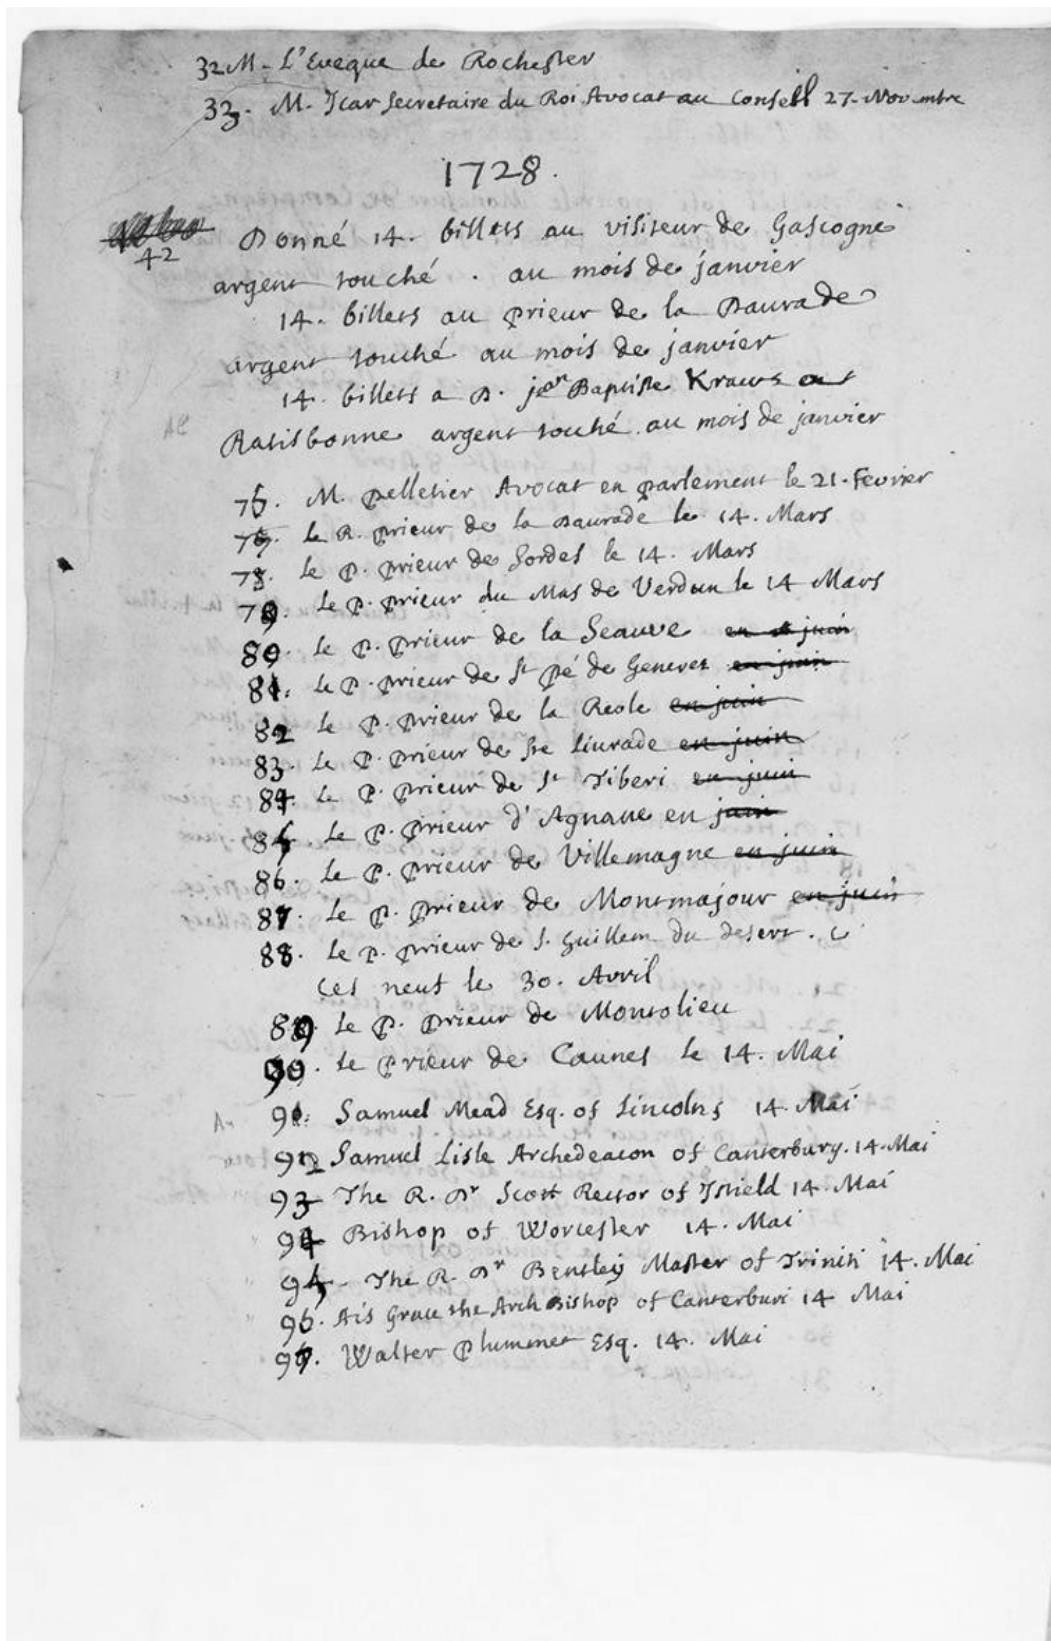 32 M. L'Eveque de Rochester
33. M. Icar Secretaire du Roi Avocat au Conseil 27. Novembre
1728.
42
Donné 14. billets au visiteur de Gascogne
argent touché. au mois de janvier
14. billets au prieur de la Daurade
argent touché au mois de janvier
14. billets a D. jean Baptiste Kraus a
Ratisbonne argent touché au mois de janvier
75. M. pelletier Avocat en parlement le 21. Fevrier
76. le R. prieur de la daurade le 14. Mars
78. le P. prieur de Sordes le 14. Mars
79. Le P. prieur du Mas de Verdun le 14 Mars
80. le P. prieur de la Seauve en juin
81. Le P. prieur de St pé de Generez en juin
82 le P. prieur de la Reole en juin
83. Le P. prieur de Ste Liurade en juin
84. Le P. prieur de St Tiberi en juin
85. Le P. prieur d'Agnane en juin
86. Le P. prieur de Villemagne en juin
87. Le P. prieur de Montmajour en juin
88. Le P. prieur de S. Guillem du desert.
Ces neuf le 30. Avril
89. Le P. prieur de Montolieu
90. Le prieur de Caunes le 14. Mai
91. Samuel Mead Esq. of Lincolns 14. Mai
92 Samuel Lisle Archedeacon of Canterbury. 14. Mai
93 The R. Dr Scott Rector of 14. Mai
94 Bishop of Worcester 14. Mai
95. The R. Dr Bentley Master of Triniti 14. Mai
96. His Grace the Arch Bishop of Canterburi 14 Mai
97. Walter Plummer Esq. 14. Mai